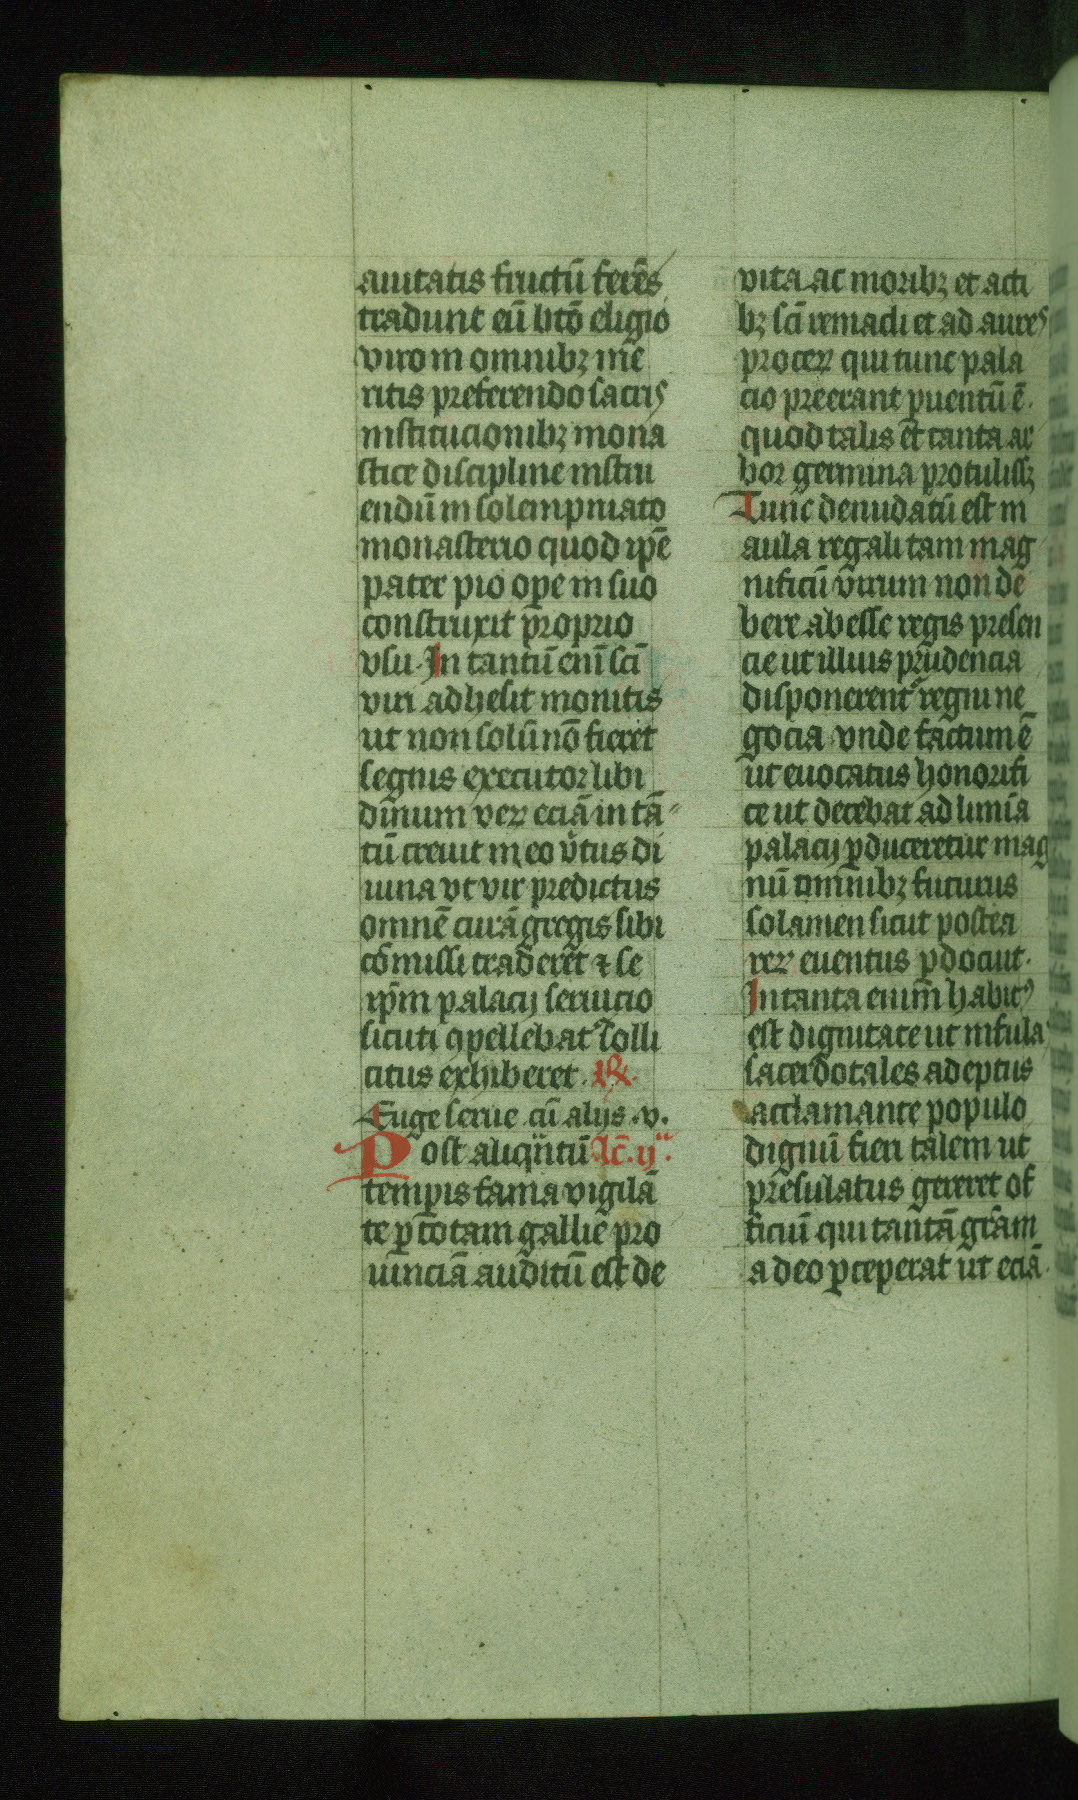 auitatis fructū ferēs
tradunt eū btō eligio
viro in omnibꝫ me
ritis preferendo sacris
institucionibꝫ mona
stice discipline instru
endū in solempniato
monasterio quod ip̄e
pater pio ope in suo
construxit proprio
vsu. In tantū enī scī
viri adhesit monitis
ut non solū nō fieret
segnis executor libi
dinum veꝝ eciā in tā
tū creuit in eo v̄tus di
uina vt vir predictus
omnē curā gregis sibi
cōmissi traderet ⁊ se
ip̄m palacij seruicio
sicuti ꝯpellebat Tolli
citus exhiberet. ℟.
Euge serue cū alijs .v.
Post aliqntū Lc̄. ij.ᵃ
tempis fama vigilā
te ꝑ totam gallie pro
uinciā auditū est de
vita ac moribꝫ et acti
bꝫ scī remacli et ad aures
proceꝝ qui tunc pala
cio preerant ꝑuentū ē.
quod talis et tanta ar
bor germina protulissꝫ
Tunc denudatū est in
aula regali tam mag
nificū virum non de
bere abesse regis presen
cie ut illius prudencia
disponerent᷑ regni ne
gocia vnde factum ē
ut euocatus honorifi
ce ut decebat ad limīa
palacij ꝑduceretur mag
nū omnibꝫ futurus
solamen sicut postea
reꝝ euentus ꝑdocuit.
In tanta enim habitꝰ
est dignitate ut infula
sacerdotales adeptus
acclamante populo
dignū fieri talem ut
presulatus gereret of
ficiū qui tantā gr̄am
a deo ꝑceperat ut eciā